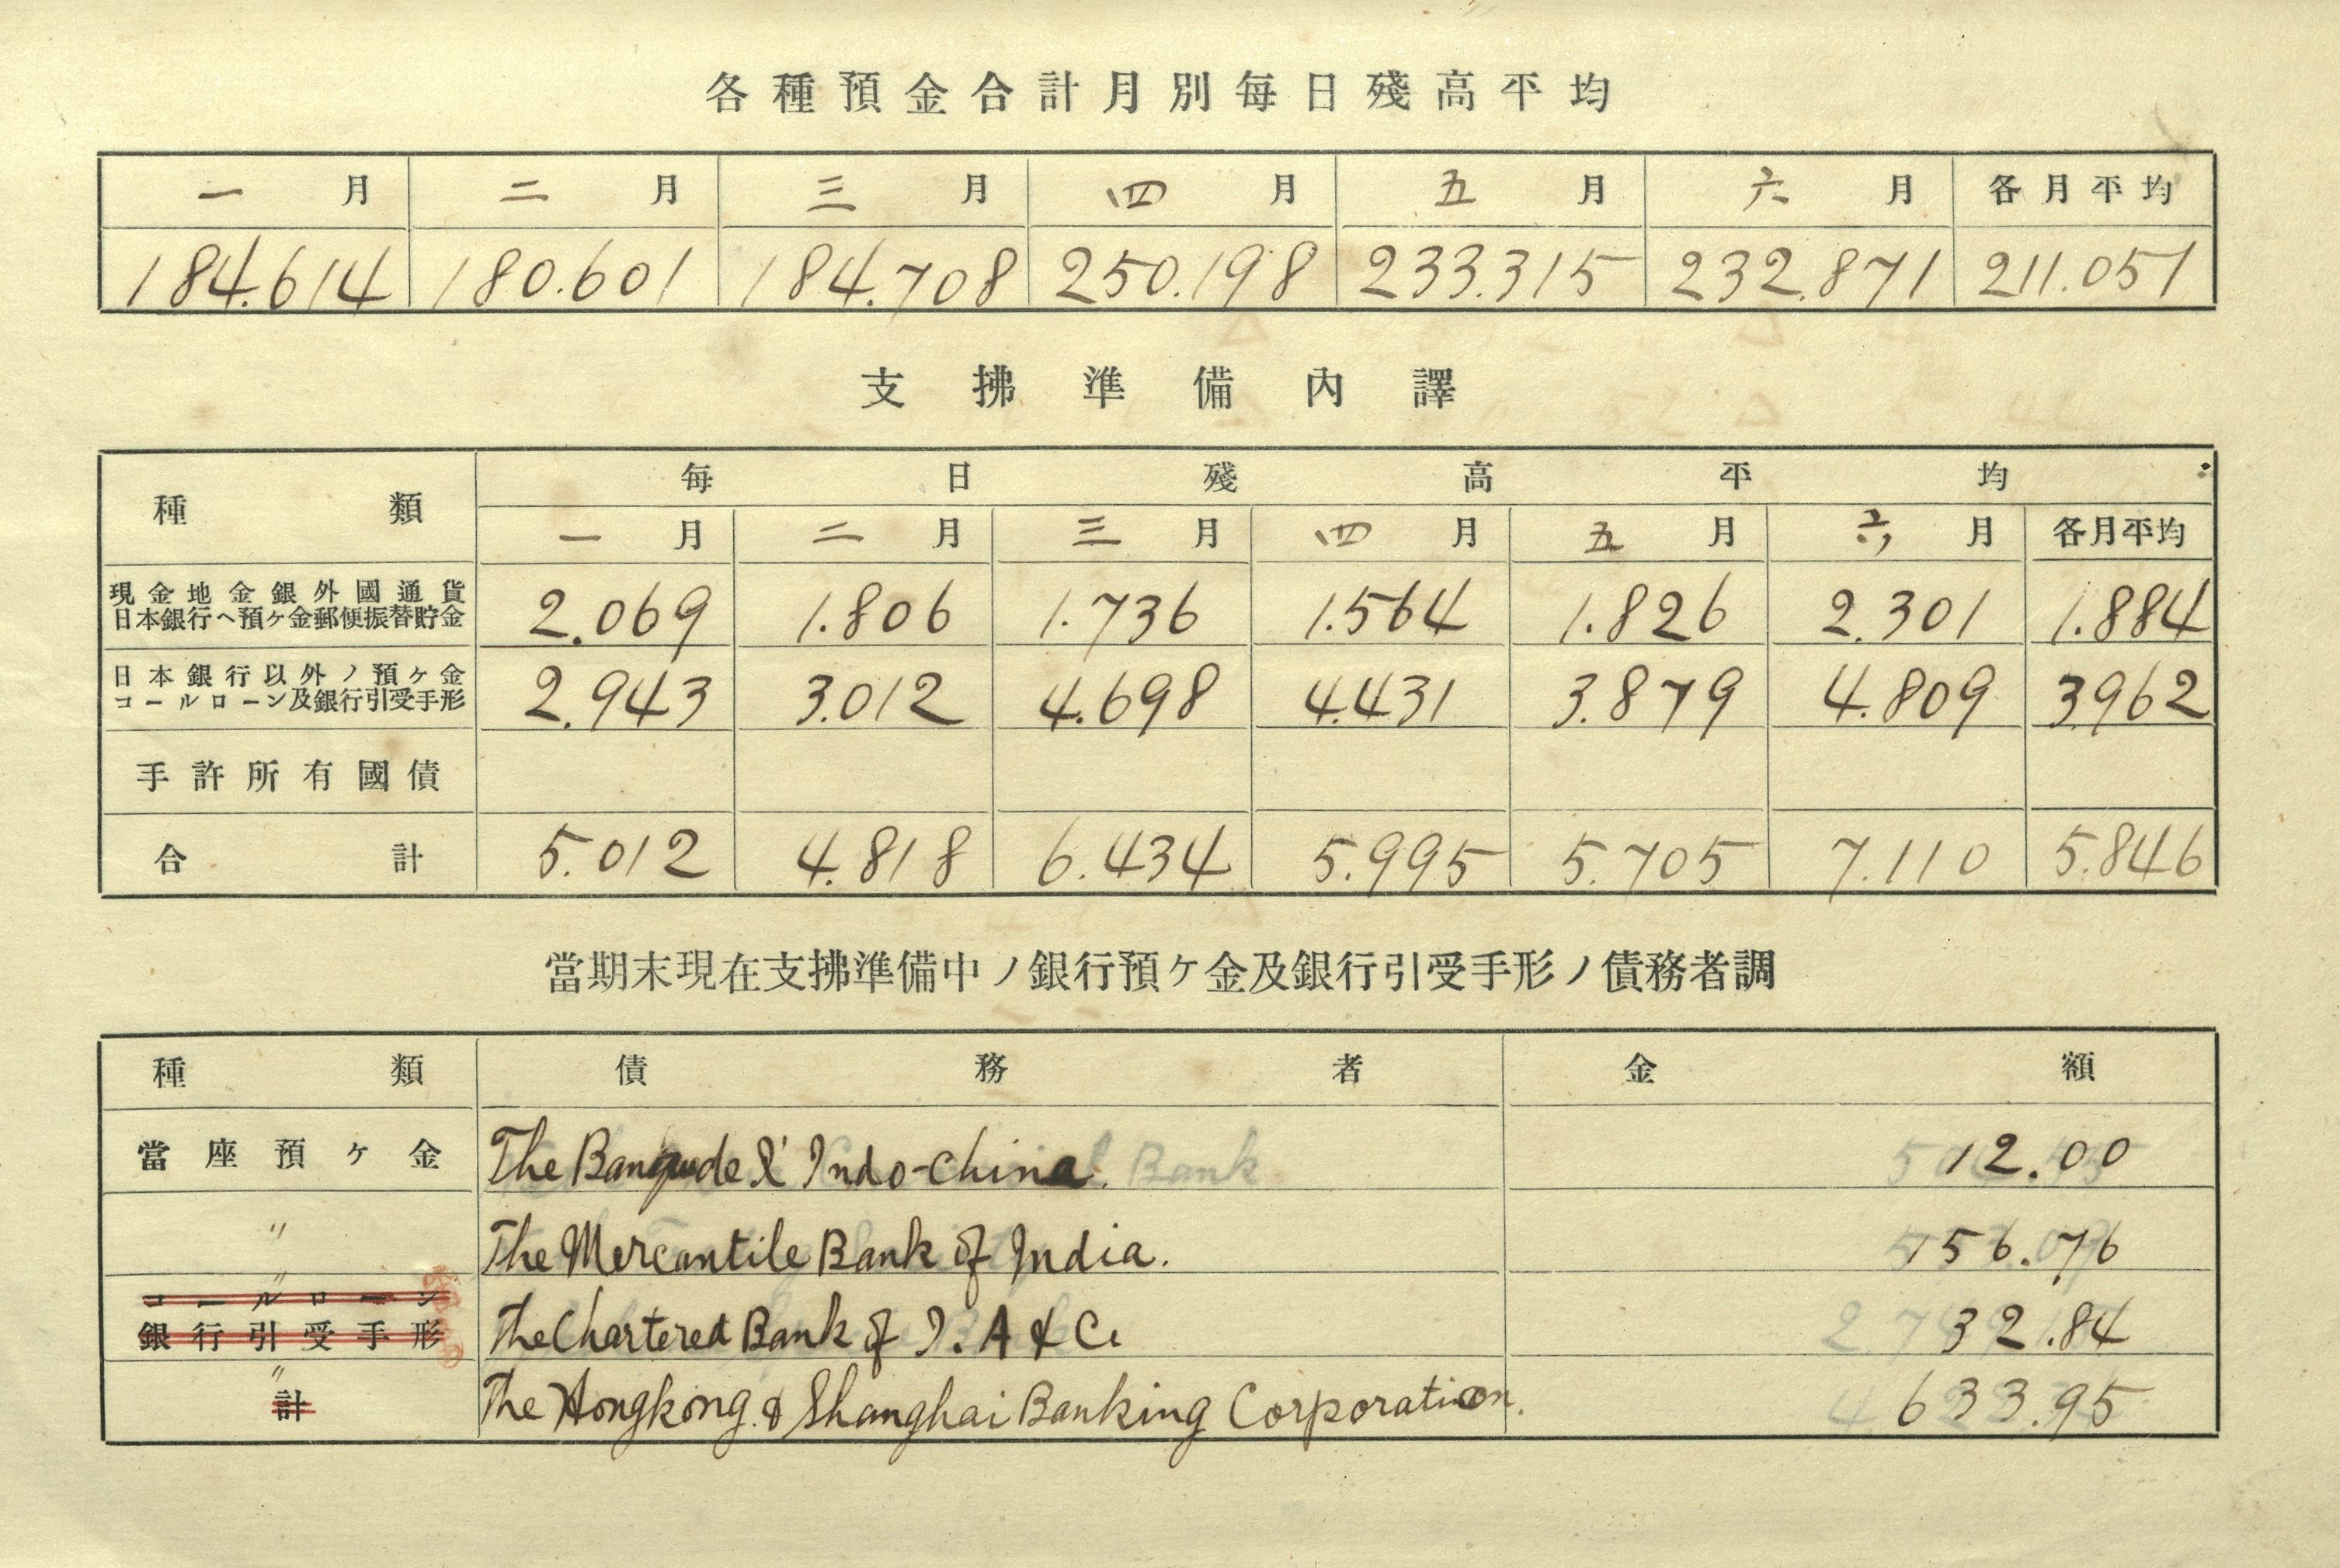 各種預金合計月別毎日殘高平均
一月 二月 三月 四月 五月 六月 各月平均
184.614 180.601 184.708 250.198 233.315 232.871 211.051
支拂準備內譯
種類 每日殘高平均
一月 二月 三月 四月 五月 六月 各月平均
現金地金銀外國通貨
日本銀行ヘ預ヶ金郵便振替貯金
2.069 1.806 1.736 1.564 1.826 2.301 1.884
日本銀行以外ノ預ヶ金
コールローン及銀行引受手形
2.943 3.012 4.698 4.431 3.879 4.809 3.962
手許所有國債
合計 5.012 4.818 6.434 5.995 5.705 7.110 5.846
當期末現在支拂準備中ノ銀行預ケ金及銀行引受手形ノ債務者調
種類 債務者 金額
當座預ヶ金 The Banque de l' Indo-china. 12.00
〃 The Mercantile Bank of India. 156.76
〃
コールローン
銀行引受手形 The Chartered Bank of I. A & C. 32.84
〃
計 The Hongkong & Shanghai Banking Corporation. 633.95